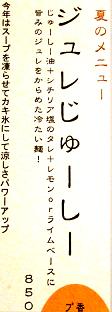 夏のメニュー
ジュレじゅーしー
じゅーしー油+シチリア塩のタレ+レモンorライムベースに
旨みのジュレをからめた冷たい麺!
今年はスープを凍らせてカキ氷にして涼しさパワーアップ
850